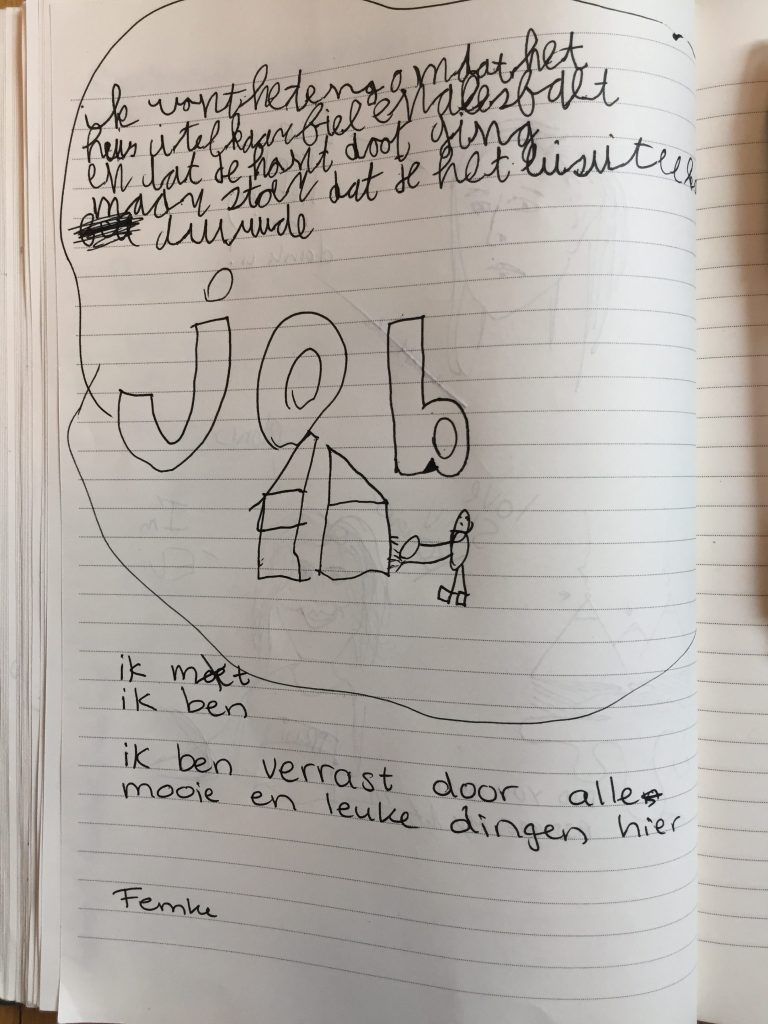 ik vont het eng omdat het
heus uitelkaar fiel en alles
en dat je hant doot ging
maar stoer dat je het
duwude
job
ik moet
ik ben
ik ben verrast door alle
mooie en leuke dingen hier
Femke